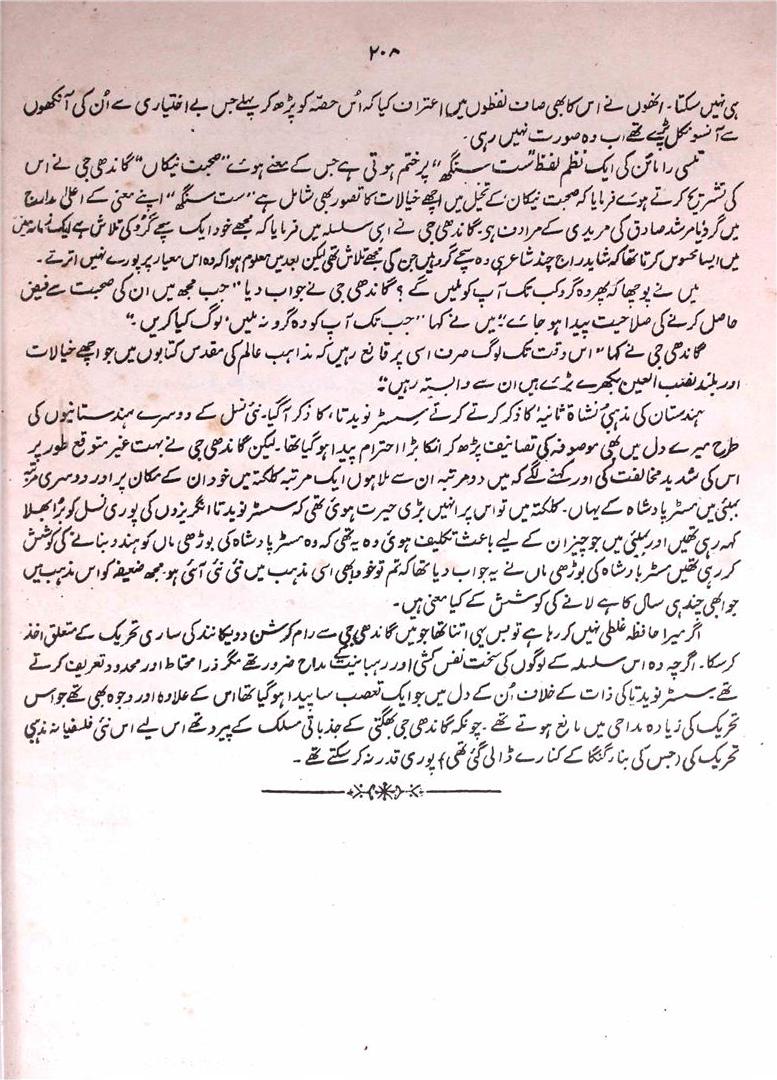 ۲۰۸
ہی نہیں سکتا۔ انھوں نے اس کا بھی صاف لفظوں میں اعتراف کیا کہ اُس حصّہ کو پڑھ کر پہلے جس بے اختیاری سے اُن کی آنکھوں
سے آنسو نکل پڑے تھے اب وہ صورت نہیں رہی۔
تلسی رامائن کی ایک نظم لفظ ”ست سنگھ“ پر ختم ہوتی ہے جس کے معنے ہوئے ”صحبت نیکاں“ گاندھی جی نے اس
کی تشریح کرتے ہوئے فرمایا کہ صحبت نیکاں کے تخیل میں اچھے خیالات کا تصور بھی شامل ہے ”ست سنگھ“ اپنے معنی کے اعلیٰ مدارج
میں گرو یا مرشد صادق کی مریدی کے مرادف ہی۔ گاندھی جی نے اسی سلسلہ میں فرمایا کہ مجھے خود ایک سچے گرو کی تلاش ہے ایک زمانہ میں
میں ایسا محسوس کرتا تھا کہ شاید راج چند شاعر ہی وہ سچے گرو ہیں جن کی مجھے تلاش تھی لیکن بعد میں معلوم ہوا کہ وہ اس معیار پر پورے نہیں اترتے۔
میں نے پوچھا کہ پھر وہ گرو کب تک آپ کو ملیں گے؟ گاندھی جی نے جواب دیا ”جب مجھ میں ان کی صحبت سے فیض
حاصل کرنے کی صلاحیت پیدا ہو جائے“ میں نے کہا ”جب تک آپ کو وہ گرو نہ ملیں لوگ کیا کریں۔“
گاندھی جی نے کہا ”اس وقت تک لوگ صرف اسی پر قانع رہیں کہ مذاہب عالم کی مقدس کتابوں میں جو اچھے خیالات
اور بلند نصب العین بکھرے پڑے ہیں ان سے وابستہ رہیں“
ہندستان کی مذہبی نشاۃ ثانیہ کا ذکر کرتے کرتے سسٹر نویدتا، کا ذکر آگیا۔ نئی نسل کے دوسرے ہندستانیوں کی
طرح میرے دل میں بھی موصوفہ کی تصانیف پڑھ کر انکا بڑا احترام پیدا ہو گیا تھا۔ لیکن گاندھی جی نے بہت غیر متوقع طور پر
اس کی شدید مخالفت کی اور کہنے لگے کہ میں دو مرتبہ ان سے ملا ہوں ایک مرتبہ کلکتہ میں خود ان کے مکان پر اور دوسری مرتبہ
بمبئی میں مسٹر پادشاہ کے یہاں۔ کلکتہ میں تو اس پر انہیں بڑی حیرت ہوئی تھی کہ سسٹر نویدتا انگریزوں کی پوری نسل کو بڑا بھلا
کہہ رہی تھیں اور بمبئی میں جو چیز ان کے لیے باعث تکلیف ہوئی وہ یہ تھی کہ وہ مسٹر پادشاہ کی بوڑھی ماں کو ہندو بنانے کی کوشش
کر رہی تھیں مسٹر پادشاہ کی بوڑھی ماں نے یہ جواب دیا تھا کہ تم تو خود ابھی اسی مذہب میں نئی نئی آئی ہو مجھ ضعیفہ کو اس مذہب میں
جو ابھی چند ہی سال کا ہے لانے کی کوشش کے کیا معنی ہیں۔
اگر میرا حافظہ غلطی نہیں کر رہا ہے تو بس یہی اتنا تھا جو میں گاندھی جی سے رام کرشن وویکانند کی ساری تحریک کے متعلق اخذ
کر سکا۔ اگرچہ وہ اس سلسلہ کے لوگوں کی سخت نفس کشی اور رہبانیت کے مداح ضرور تھے مگر ذرا محتاط اور محدود تعریف کرتے
تھے۔ سسٹر نویدتا کی ذات کے خلاف اُن کے دل میں جو ایک تعصب سا پیدا ہو گیا تھا اس کے علاوہ اور وجوہ بھی تھے جو اس
تحریک کی زیادہ مداحی میں مانع ہوتے تھے۔ چونکہ گاندھی جی بھگتی کے جذباتی مسلک کے پیرو تھے اس لیے اس نئی فلسفیانہ مذہبی
تحریک کی (جس کی بنا گنگا کے کنارے ڈالی گئی تھی) پوری قدر نہ کر سکتے تھے۔